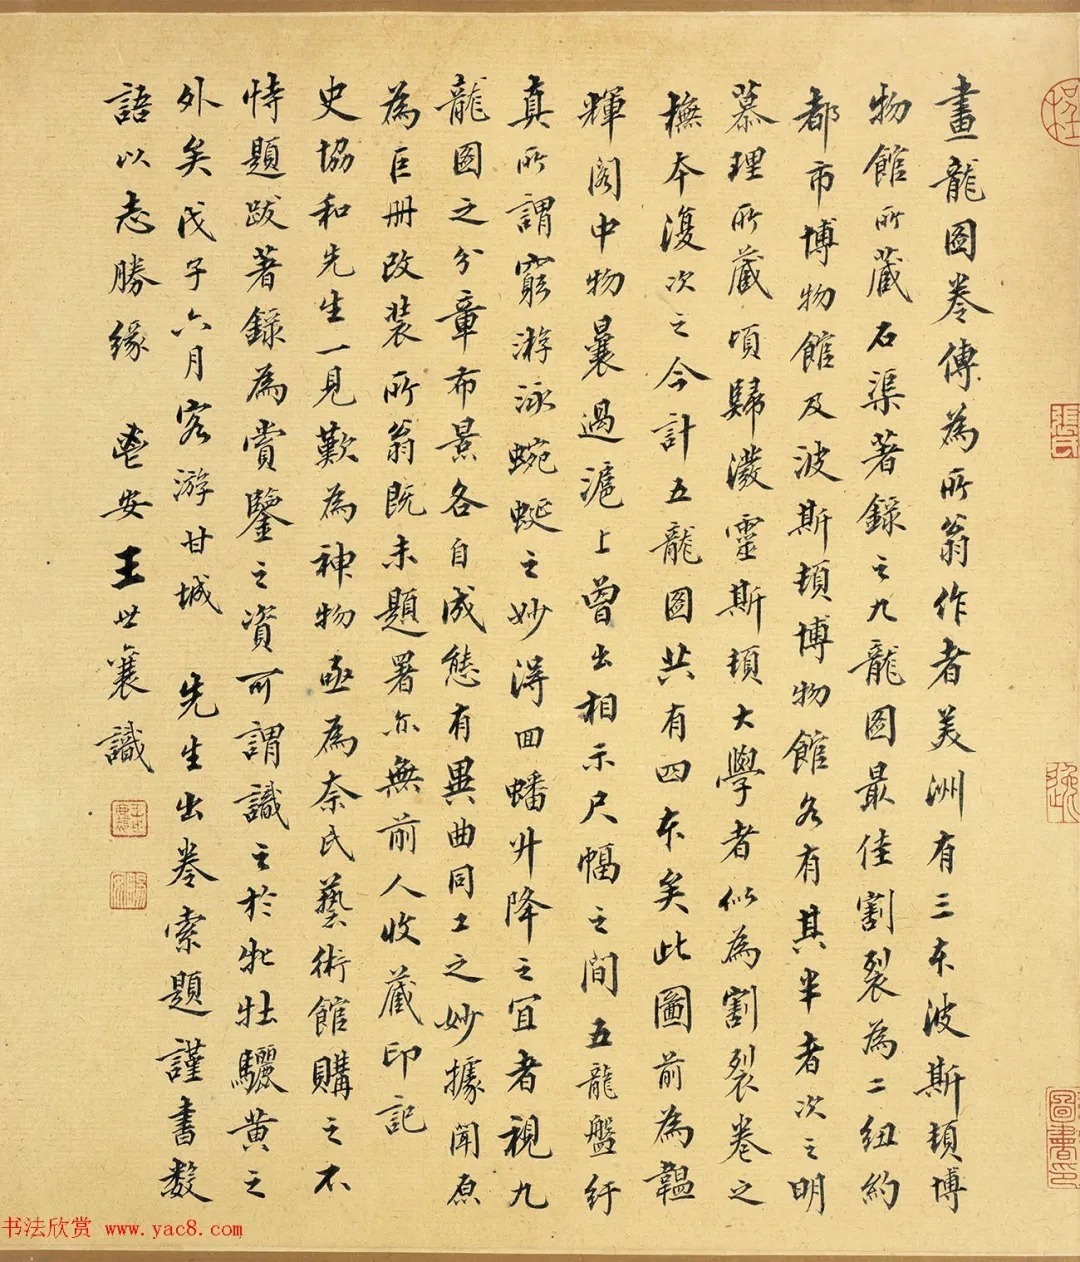 畫龍圖卷傳為所翁作者美洲有三本波斯頓博
物館所藏石渠著錄之九龍圖最佳割裂為二紐約
都市博物館及波斯頓博物館各有其半者次之明
慕理所藏頃歸濮靈斯頓大學者似為割裂卷之
橅本復次之今計五龍圖共有四本矣此圖前為韞
輝閣中物曩過滬上曾出相示尺幅之間五龍盤紆
真所謂窮游泳蜿蜒之妙得回蟠升降之宜者視九
龍圖之分章布景各自成態有異曲同工之妙據聞原
為巨冊改裝所翁既未題署亦無前人收藏印記
史協和先生一見歎為神物亟為奈氏藝術館購之不
恃題跋著錄為賞鑒之資可謂識之於牝牡驪黃之
外矣戊子六月客游甘城 先生出卷索題謹書數
語以志勝緣 鬯安王世襄識
張氏
圖書印
书法欣赏 www.yac8.com